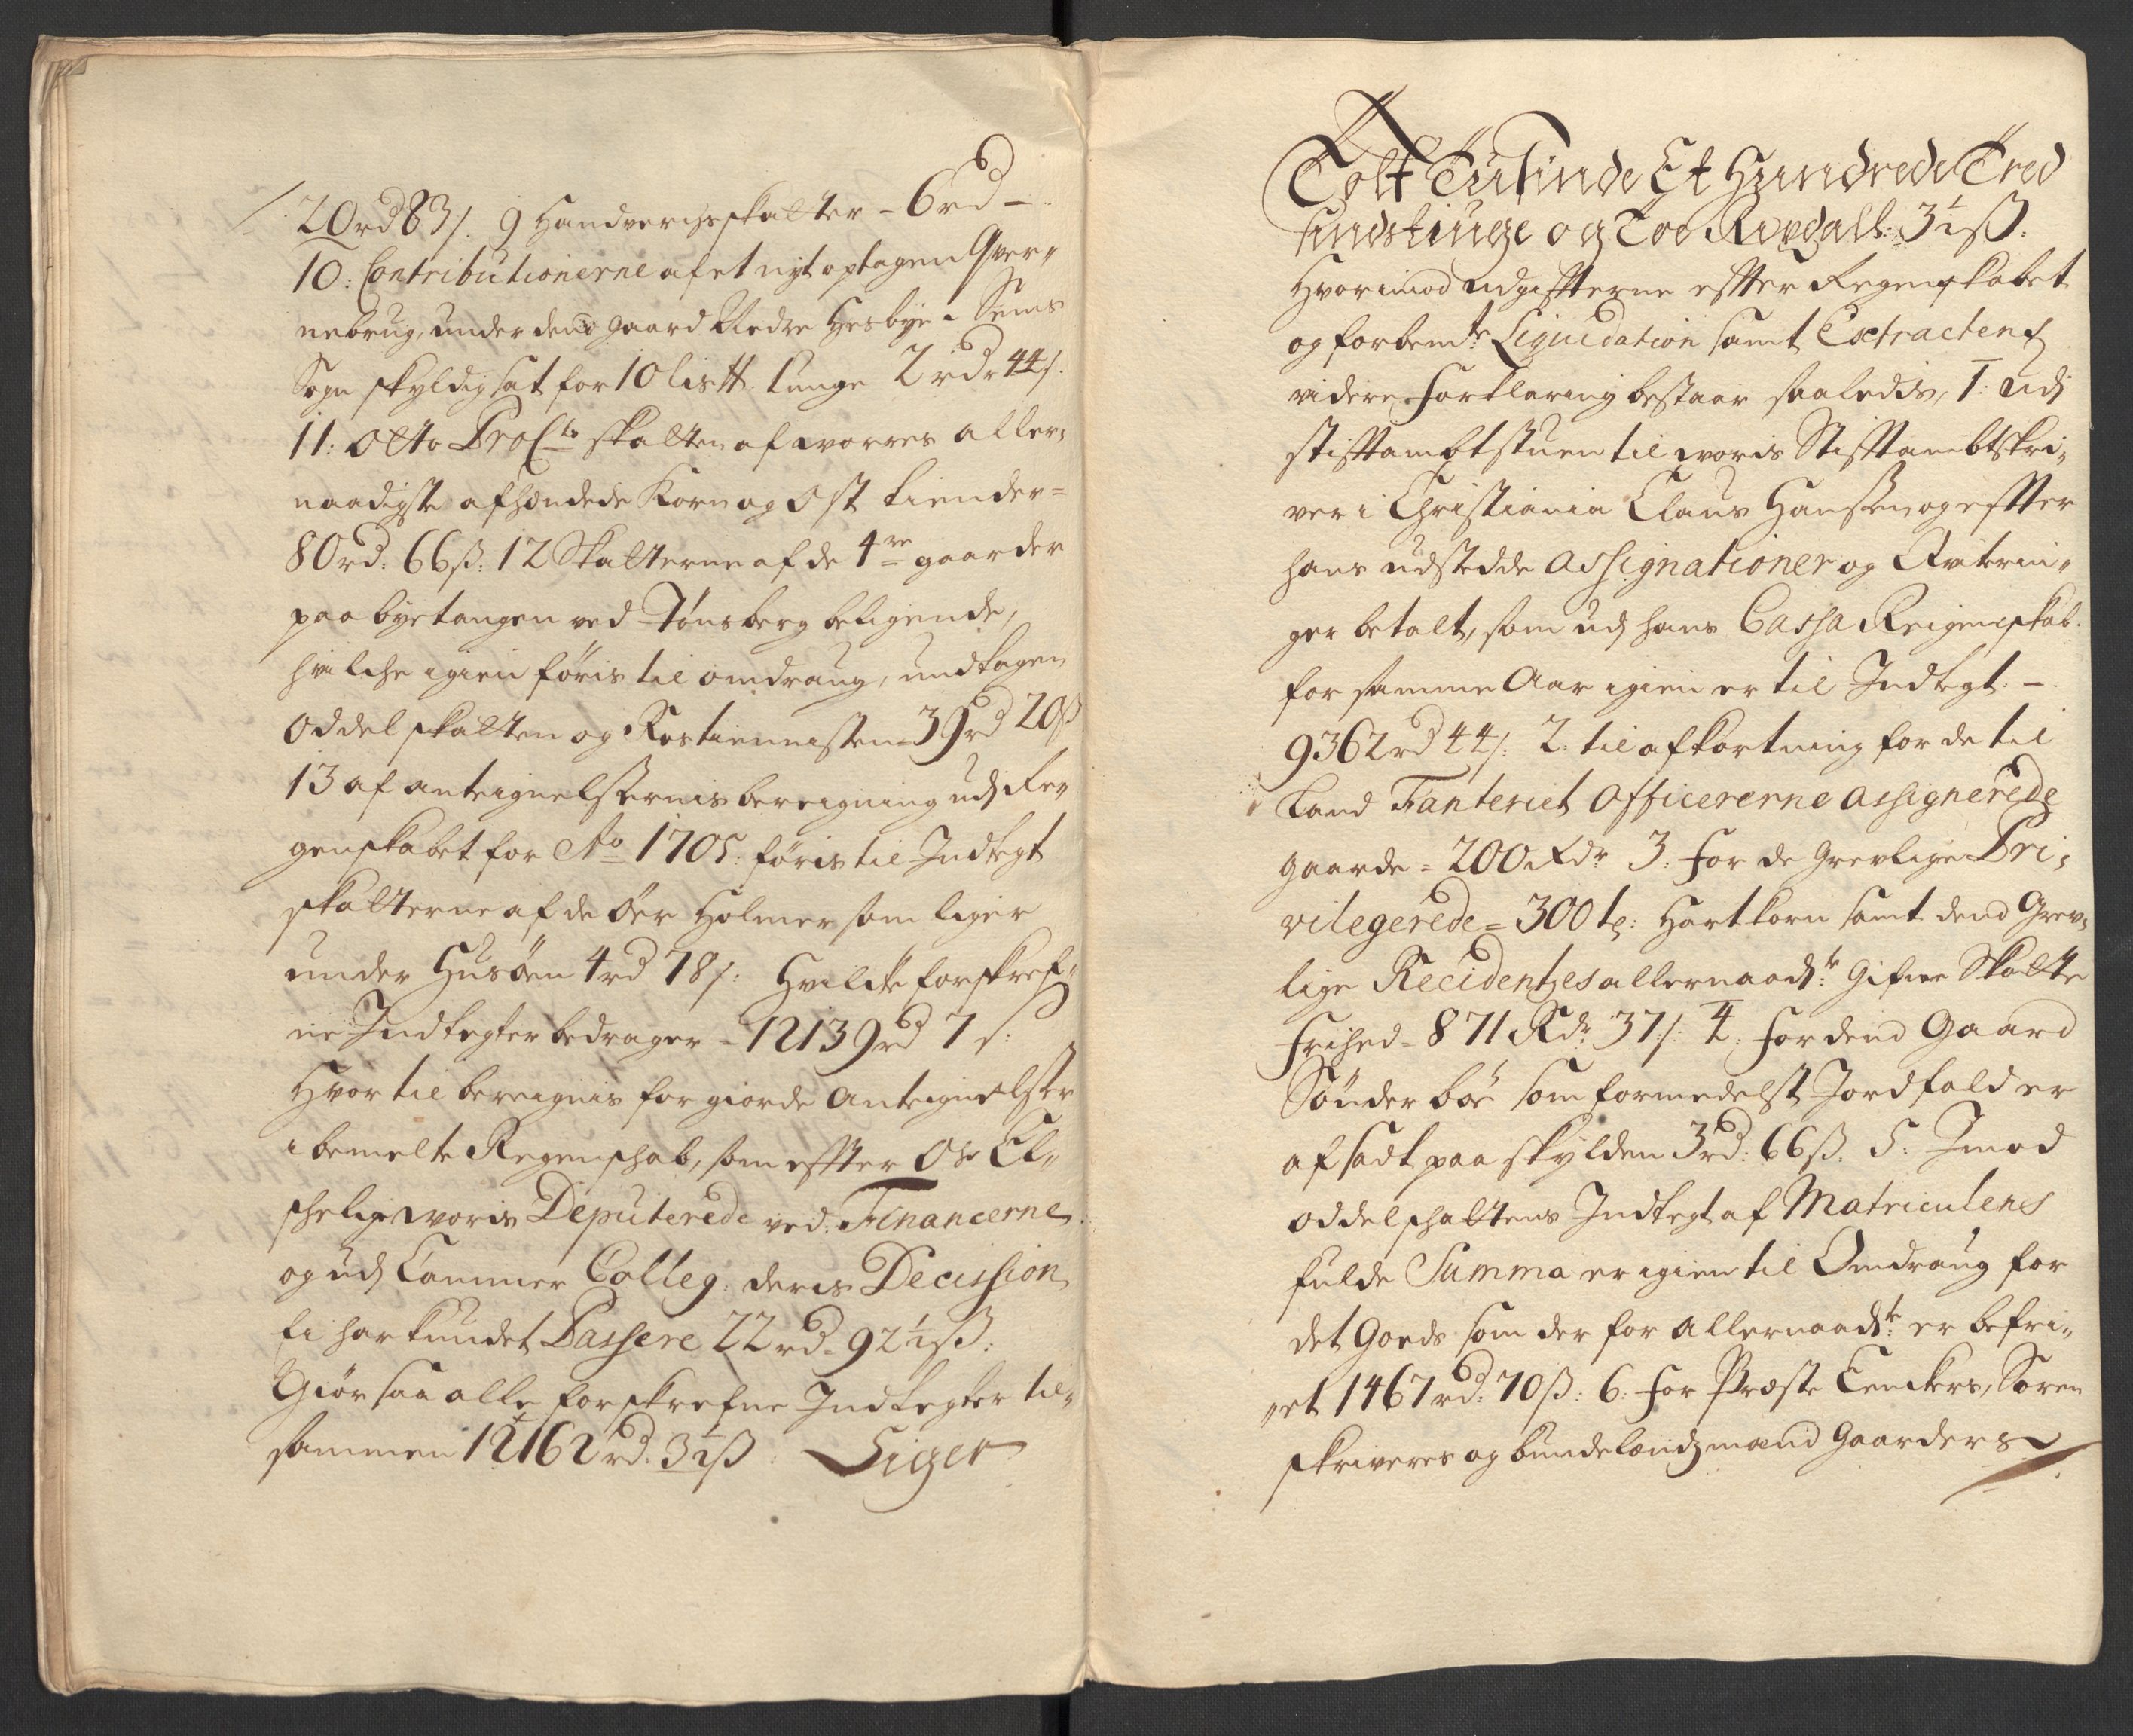 20rd 83s. 9 Handverchsskatter - 6rd -
10: Contributionerne af et nyt optagen Qver„
nebrug, under dend gaard Nedre Hesbye i Sems
Sogn skyldig sat for 10 lis tt. tunge 2 rdr 44s.
11: Otto ProCto skatten af worres aller„
naadigste afhendede Korn og Ost tiender =
80rd: 66ß: 12 Skatterne af de 4re gaarder
paa byetangen ved Tønsberg beligende,
hvilche igien føris til omdraug, undtagen
Oddelskatten og Rostienisten 39rd 20ß
13 af anteignelssernis bereigning udj Re„
genskabet for Ao 1705: føris til Indtegt
skatterne af de øer Holmer som liger
under Husöen 4rd 78s: Hvilcke forskref„
ne Indtegter bedrager - 12139rd 7s:
Hvortil bereignis for giorde Anteignelsser
i bemelte Regenskab, som effter Os El„
schelige woris Deputerede ved Financerne
og udj Cammer Colleg: deris Decission
ei har kundet Passere 22rd 92½ß:
Giør saa alle forskrefne Indtegter til„
sammen 12162rd. 3½ß: Siger
Tolf Tusinde Et Hundrede Tred
sindstiuge og Toe Rixdall: 3½ß.
Hvorimod udgiffterne effter Regenskabet
og forbemte Liquidation samt Extractens
videre forklaring bestaar saaledis, 1: udj
stifftambtstuen til woris Stifftambtskri„
ver i Christiania Claus Hanssen og effter
hans udstedde assignationer og Qviterin„
ger betalt, som udj hans Cassa Reigenskab
for samme Aar igien er til Indtegt -
9362rd 44s: 2: til afkortning for de til
Land Fanteriet Officererne assignerede
gaarde = 200 Rdr 3: for de Grevlige Pri„
vilegerede = 300 te: Hartkorn samt dend Grev„
lige Recidentzes allernaadste Gifne Skatte
frihed - 871 Rdr 37s: 4: for dend Gaard
Sönder böe som formedelst Jordfald er
afsadt paa skylden 3rd: 66ß. 5: Jmod
oddelschattens Indtegt af Matriculens
fulde Summa er igien til Omdraug for
det Goeds som der for allernaadste er befri„
„et 1467rd: 70ß: 6: for Præste Enckers, Soren
skriveres og bundelændsmænd Gaarders